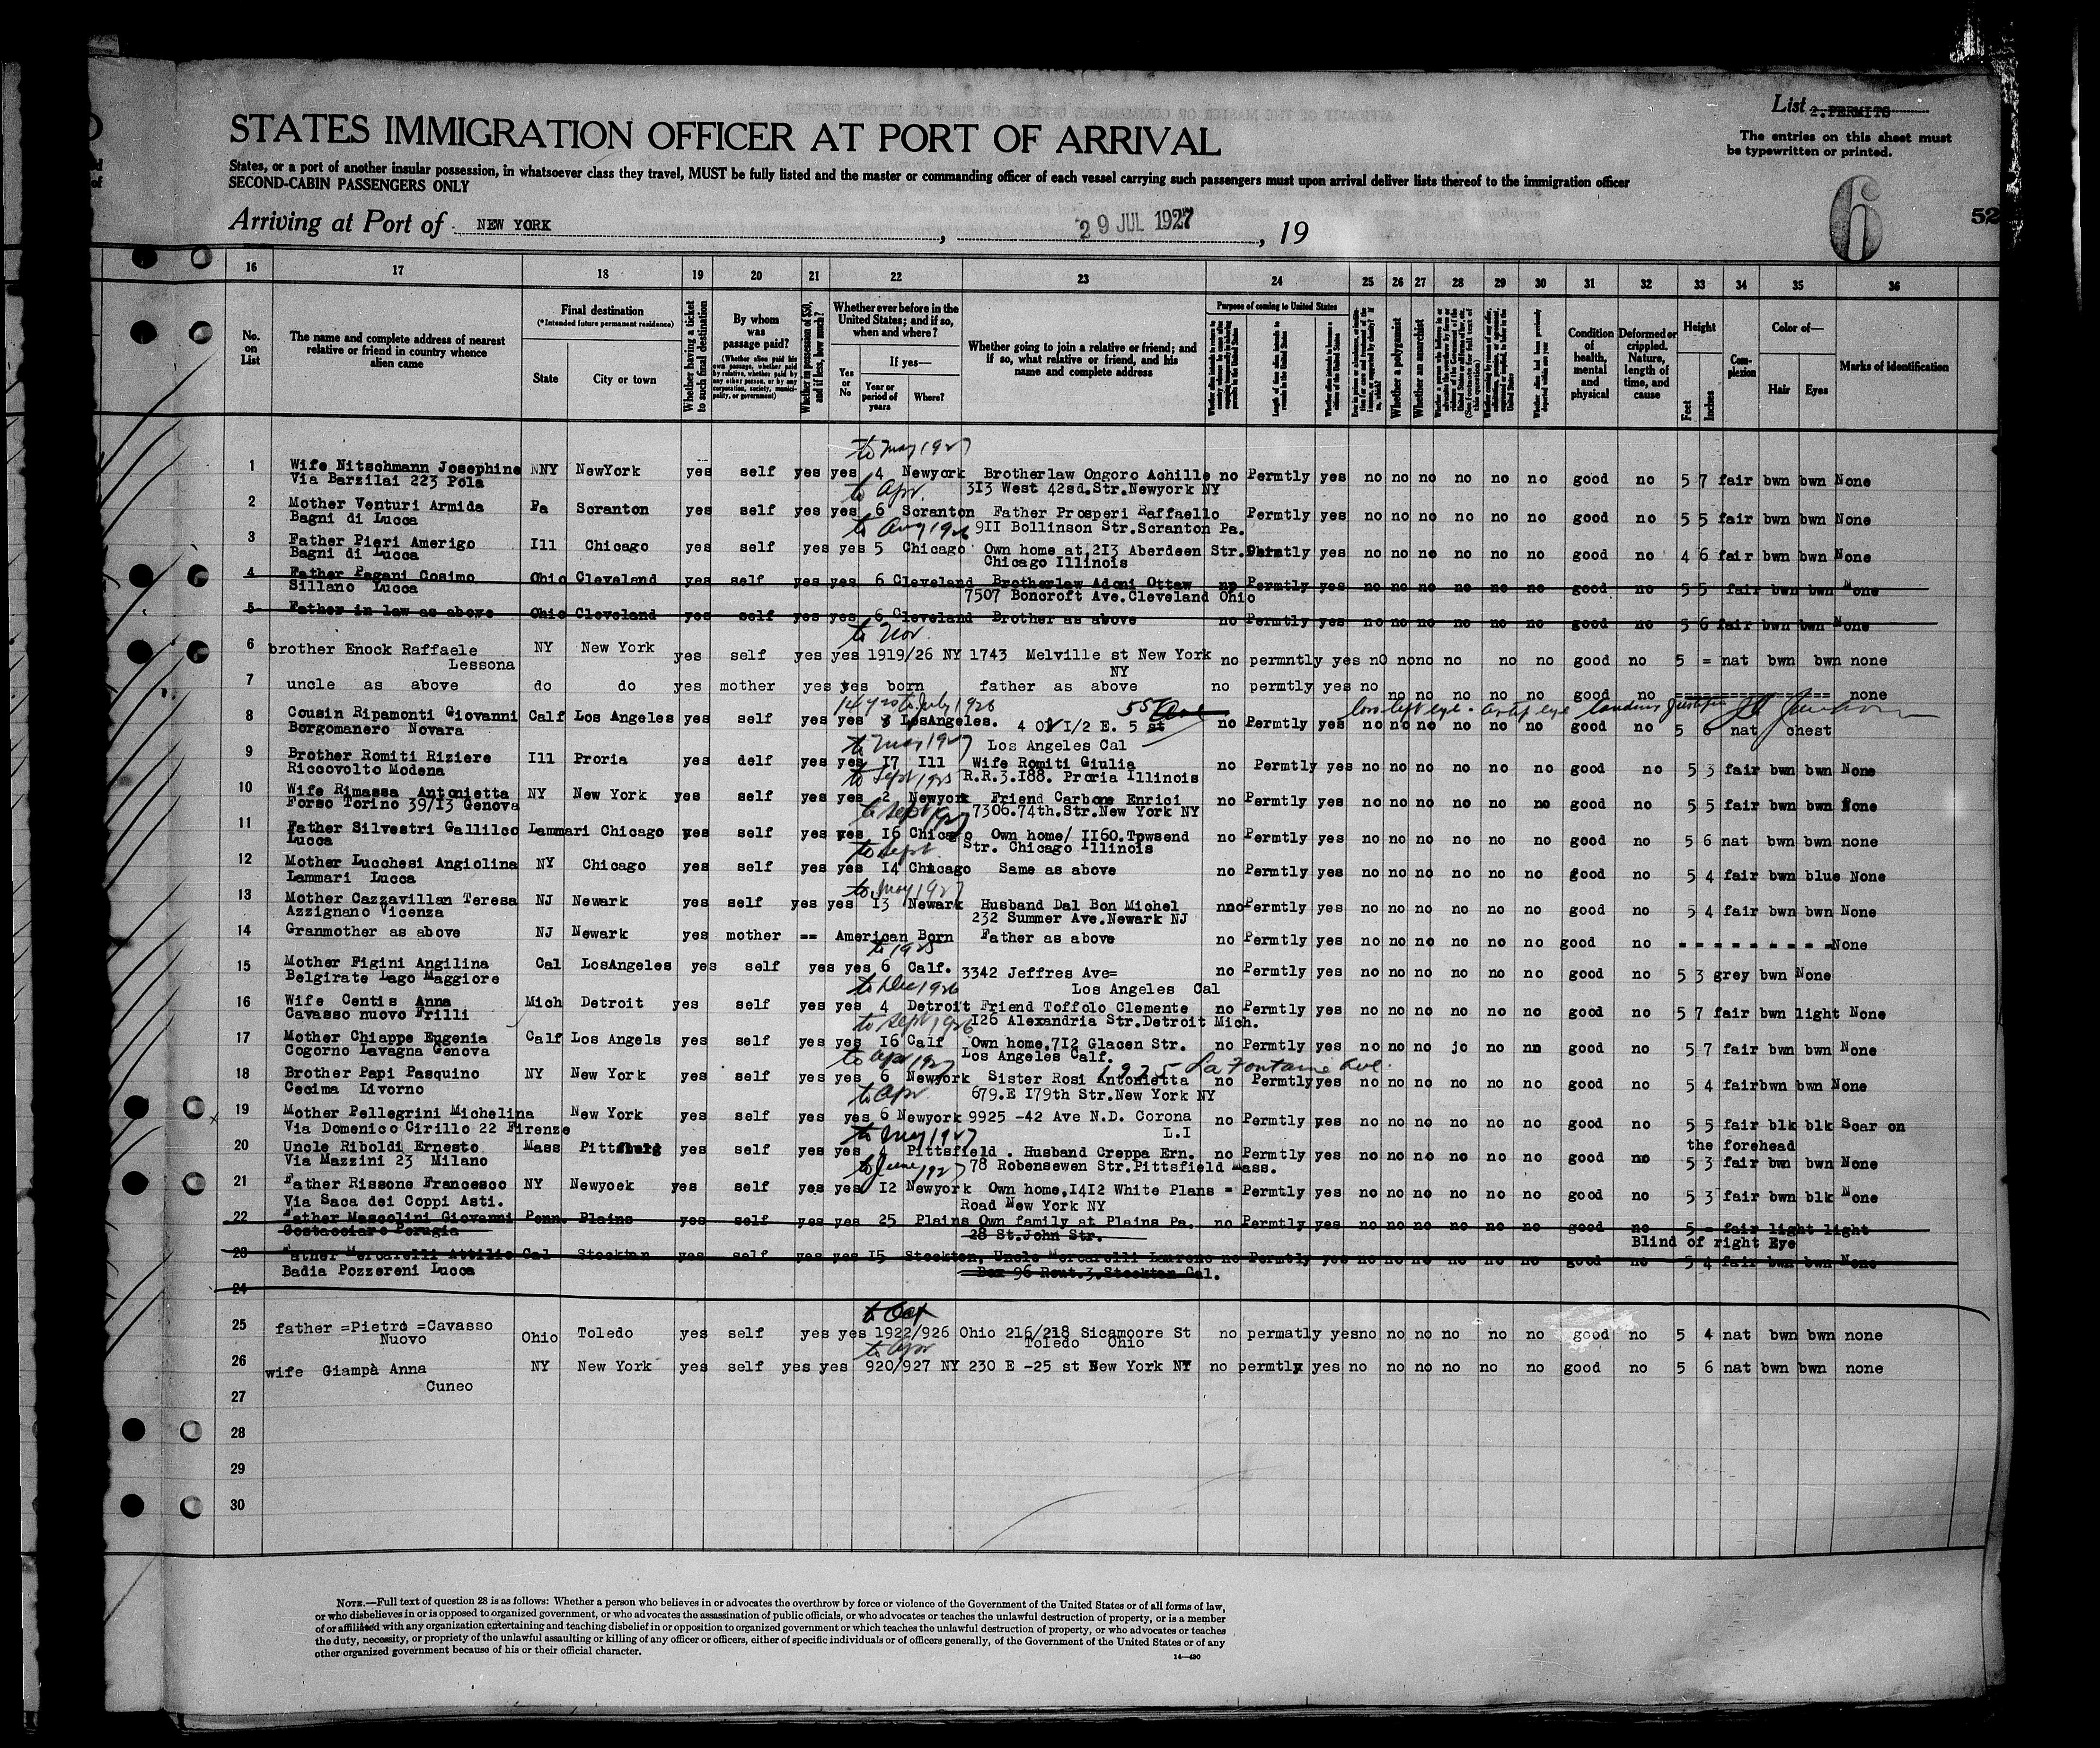 List 2.PERMITS
STATES IMMIGRATION OFFICER AT PORT OF ARRIVAL
The entries on this sheet must
be typewritten or printed.
States, or a port of another insular possession, in whatsoever class they travel, MUST be fully listed and the master or commanding officer of each vessel carrying such passengers must upon arrival deliver lists thereof to the immigration officer
SECOND-CABIN PASSENGERS ONLY
6 52
Arriving at Port of NEW YORK, 29 JUL 1927, 19
16 17 18 19 20 21 22 23 24 25 26 27 28 29 30 31 32 33 34 35 36
No. on List
The name and complete address of nearest relative or friend in country whence alien came
Final destination
(*Intended future permanent residence)
State City or town
Whether having a ticket to such final destination
By whom was passage paid?
(Whether alien paid his own passage, whether paid by relative, whether paid by any other person, or by any corporation, society, municipality, or government)
Whether in possession of $50, and if less, how much?
Whether ever before in the United States; and if so, when and where?
If yes—
Yes or No Year or period of years Where?
Whether going to join a relative or friend; and if so, what relative or friend, and his name and complete address
Purpose of coming to United States
Whether a polygamist
Whether an anarchist
Condition of health, mental and physical
Deformed or crippled. Nature, length of time, and cause
Height
Feet Inches
Complexion
Color of—
Hair Eyes
Marks of identification
to may 1927
1 Wife Nitschmann Josephine NNY NewYork yes self yes yes 4 Newyork Brotherlaw Ongoro Achille no Permtly yes no no no no no no good no 5 7 fair bwn bwn None
Via Barzilai 223 Pola to Apr. 313 West 42sd.Str.Newyork NY
2 Mother Venturi Armida Pa Scranton yes self yes yes 6 Scranton Father Prosperi Raffaello Permtly yes no no no no no no good no 5 5 fair bwn bwn None
Bagni di Lucca to Aug 1926 911 Bollinson Str.Scranton Pa.
3 Father Pieri Amerigo Ill Chicago yes self yes yes 5 Chicago Own home at,213 Aberdeen Str. yes no no no no no no good no 4 6 fair bwn bwn None
Bagni di Lucca Chicago Illinois
4 Father Pagani Cosimo Ohio Cleveland yes self yes yes 6 Cleveland Brotherlaw Adoni Ottaw no Permtly yes no no no no no no good no 5 5 fair bwn bwn None
Sillano Lucca 7507 Boncroft Ave.Cleveland Ohio
5 Father in law as above Ohio Cleveland yes self yes yes 6 Cleveland Brother as above no Permtly yes no no no no no no good no 5 6 fair bwn bwn None
to Nov.
6 brother Enock Raffaele NY New York yes self yes yes 1919/26 NY 1743 Melville st New York no permntly yes nO nono no no no good no 5 = nat bwn bwn none
Lessona NY
7 uncle as above do do yes mother yes yes born father as above no permtly yes no no no no no no good no ================== none
14 yrs to July 1926 55 Ave
8 Cousin Ripamonti Giovanni Calf Los Angeles yes self yes yes 8 LosAngeles. 4 01/2 E. 5 st no Permtly yes no no no no no no good no 5 6 nat chest
Borgomanero Novara to may 1927 Los Angeles Cal
9 Brother Romiti Riziere Ill Proria yes delf yes yes 17 Ill Wife Romiti Giulia no Permtly yes no no no no no no good no 5 3 fair bwn bwn None
Riccovolto Modena to Sept 1925 R.R.3.188. Proria Illinois
10 Wife Rimassa Antonietta NY New York yes self yes yes 2 Newyork Friend Carbone Enrici no Permtly yes no no no no no no good no 5 5 fair bwn bwn None
Forso Torino 39/13 Genova 7306.74th.Str.New York NY
11 Father Silvestri Gallilco Lammari Chicago yes self yes yes 16 Chicago Own home/ 1160.Tpwsend no Permtly yes no no no no no no good no 5 6 nat bwn bwn none
Lucca to Sept. Str. Chicago Illinois
12 Mother Lucchesi Angiolina NY Chicago yes self yes yes 14 Chicago Same as above no Permtly yes no no no no no no good no 5 4 fair bwn blue None
Lammari Lucca to may 1927
13 Mother Cazzavillan Teresa NJ Newark yes self yes yes 13 Newark Husband Dal Bon Michel nnoPermtly yes no no no no no no good no 5 4 fair bwn bwn None
Azzignano Vicenza 232 Summer Ave.Newark NJ
14 Granmother as above NJ Newark yes mother == American Born Father as above no Permtly yes no no no no no no good no = = = = = = = = =None
to 1925
15 Mother Figini Angilina Cal LosAngeles yes self yes yes 6 Calf. 3342 Jeffres Ave= no Permtly yes no no no no no no good no 5 3 grey bwn None
Belgirate Lago Maggiore to Dec 1926 Los Angeles Cal
16 Wife Centis Anna Mich Detroit yes self yes yes 4 Detroit Friend Toffolo Clemente no Permtly yes no no no no no no good no 5 7 fair bwn light None
Cavasso nuovo Frilli to Sept 1926 126 Alexandria Str.Detroit Mich.
17 Mother Chiappe Eugenia Calf Los Angels yes self yes yes 16 Calf Own home,712 Glacen Str. no Permtly yes no no no jo no nn good no 5 7 fair bwn bwn None
Cogorno Lavagna Genova to Apr 1927 Los Angeles Calf. 1925 La Fontaine Ave.
18 Brother Papi Pasquino NY New York yes self yes yes 6 Newyork Sister Rosi Antonietta no Permtlyyes no no no no no no good no 5 4 fairbwn bwn None
Cecima Livorno to Apr 679.E 179th Str.New York NY
19 Mother Pellegrini Michelina New York yes self yes yes 6 Newyork 9925 -42 Ave N.D. Corona no Permtly yes no no no no no no good no 5 5 fair blk blk Scar on
Via Domenico Cirillo 22 Firenze L.I the forehead
to May 1927
20 Uncle Riboldi Ernesto Mass yes self yes yes Pittsfield . Husband Creppa Ern. no Permtly yes no no no no no no good no 5 3 fair bwn bwn None
Via Mazzini 23 Milano to June 1927 78 Robensewen Str.Pittsfield Mass.
21 Father Rissone Francesco NY Newyoek yes self yes yes 12 Newyork Own home,1412 White Plans = Permtly yes no no no no no no good no 5 3 fair bwn blk None
Via Saca dei Coppi Asti. Road New York NY
22 Father Mascolini Giovanni Penn. Plains yes self yes yes 25 Plains Own family at Plains Pa. no Permtly yes no no no no no no good no 5 = fair light light
Costacciaro Perugia 28 St.John Str. Blind of right Eye
23 Father Mercarelli Attilio Cal Stockton yes self yes yes 15 Stockton, Uncle Mercarelli Laureno no Permtly yes no no no no no no good no 5 4 fair bwn bwn None
Badia Pozzereni Lucca Box 96 Rout.3.Stockton Cal.
24
to Oct
25 father =Pietro =Cavasso Ohio Toledo yes self yes yes 1922/926 Ohio 216/218 Sicamoore St no permatly yesno no no no no no good no 5 4 nat bwn bwn none
Nuovo Toledo Ohio
to Apr
26 wife Giampà Anna NY New York yes self yes yes 920/927 NY 230 E -25 st New York NY no permtly yes no no no no no no good no 5 6 nat bwn bwn none
Cuneo
27
28
29
30
NOTE.—Full text of question 28 is as follows: Whether a person who believes in or advocates the overthrow by force or violence of the Government of the United States or of all forms of law,
or who disbelieves in or is opposed to organized government, or who advocates the assassination of public officials, or who advocates or teaches the unlawful destruction of property, or is a member
of or affiliated with any organization entertaining and teaching disbelief in or opposition to organized government or which teaches the unlawful destruction of property, or who advocates or teaches
the duty, necessity, or propriety of the unlawful assaulting or killing of any officer or officers, either of specific individuals or of officers generally, of the Government of the United States or of any
other organized government because of his or their official character.
14—430